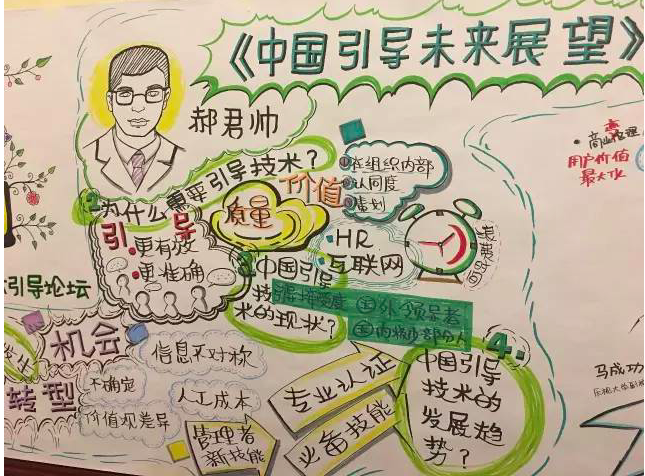 《中国引导未来展望》
郝君帅
为什么需要引导技术？
引导
更有效
更准确
质量
价值
在组织内部
认同度
HR
互联网
用户价值
最大化
引导论坛
2.
中国引导
技
术的现状？
国外领导者
国内
机会
转型
信息不对称
不确定
人工成本
价值观差异
管理者
新技能
专业认证
业备技能
4.
中国引导
技术的
发展趋
势？
马成功